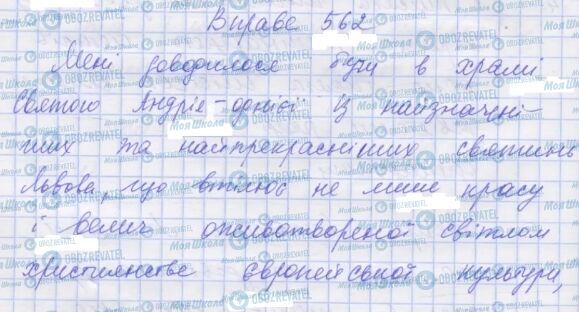 Вправа 562
Мені доводилося бути в храмі
Святого Андрія - однієї із найзначні-
ших та найпрекрасніших святинь
Львова, що втілює не лише красу
і велич оживотвореної світлом
християнства європейської культури,